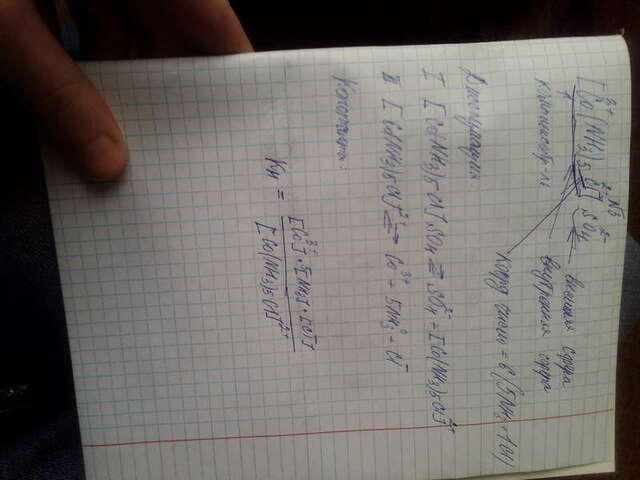 [Co(NH3)5Cl]SO4 внешняя сфера
внутренняя сфера
коорд числ = 6 (5NH3 + 1Cl)
Диссоциация
I [Co(NH3)5Cl]SO4 ⇄ SO4²⁻ + [Co(NH3)5Cl]²⁺
II [Co(NH3)5Cl]²⁺ ⇄ Co³⁺ + 5NH3⁰ + Cl⁻
Kн = [Co³⁺]·5[NH3]·[Cl⁻] / [Co(NH3)5Cl]²⁺